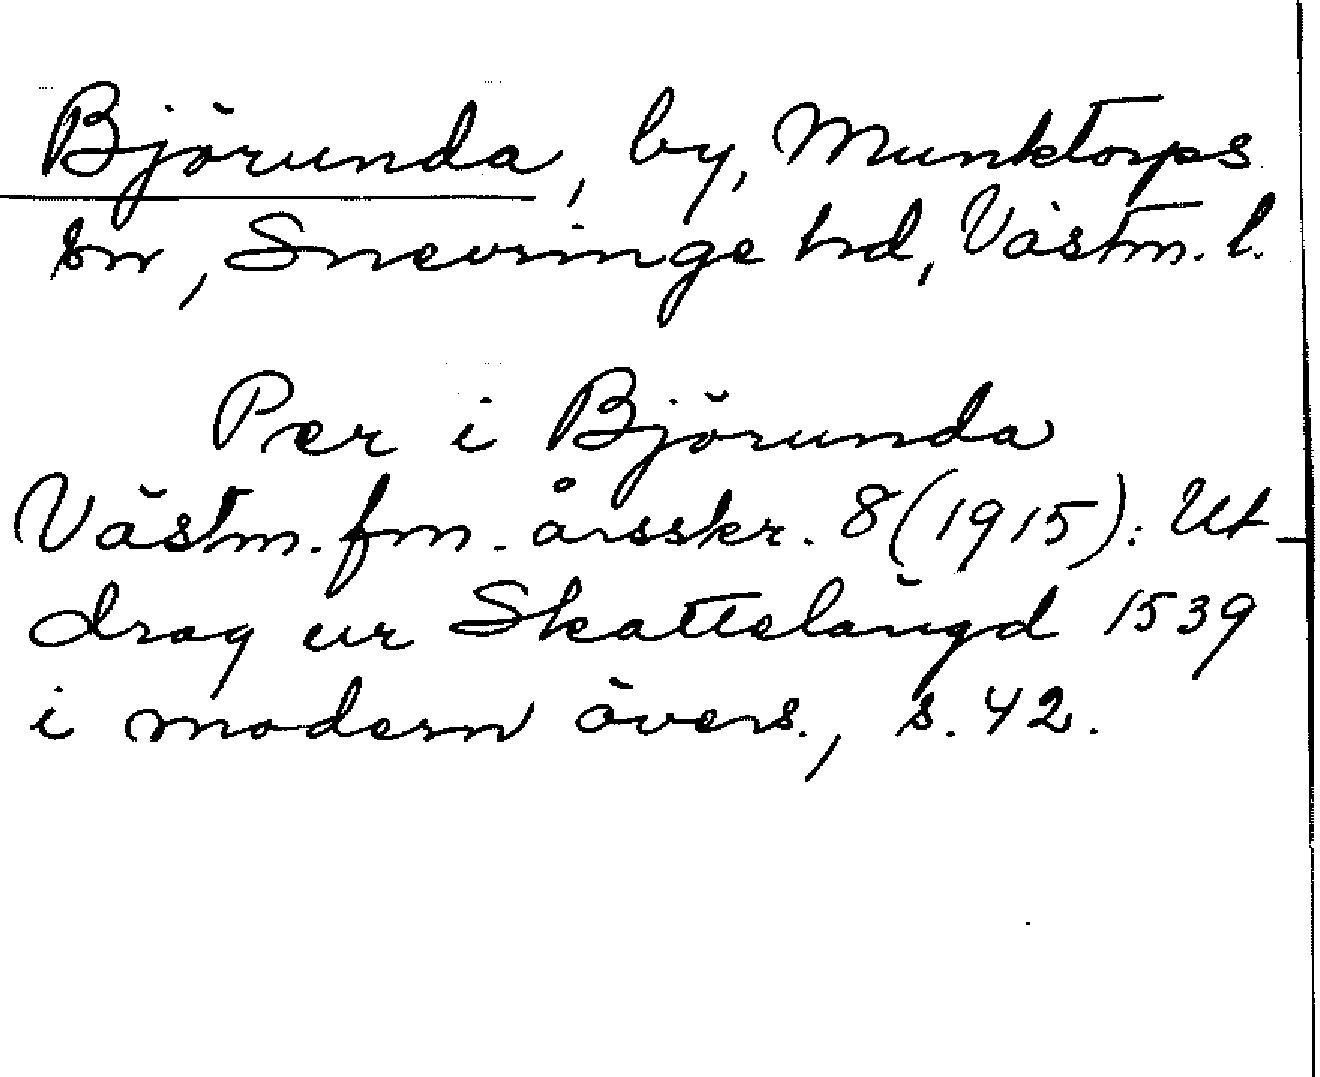 Björunda, by, Munktorps
sn, Snevringe hd, Västm. l.
Per i Björunda
Västm. fm. årsskr. 8 (1915): Ut-
drag ur Skattelängd 1539
i modern övers., s. 42.